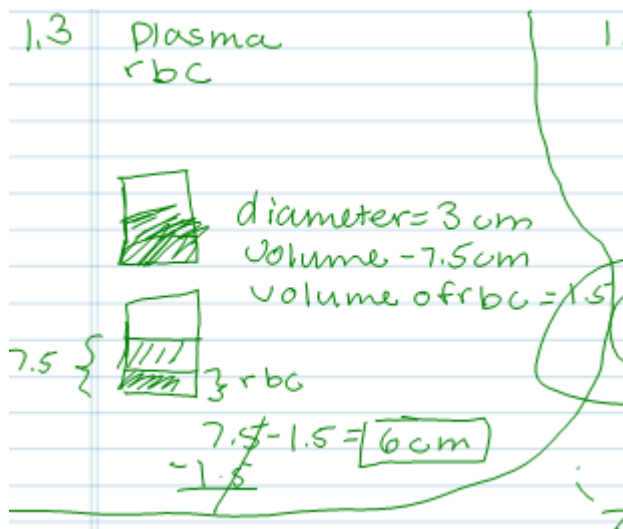 1.3 Plasma
rbc
diameter = 3 cm
volume - 7.5 cm
volume of rbc = 1.5
7.5 { } rbc
7.5 - 1.5 = 6 cm
-1.5